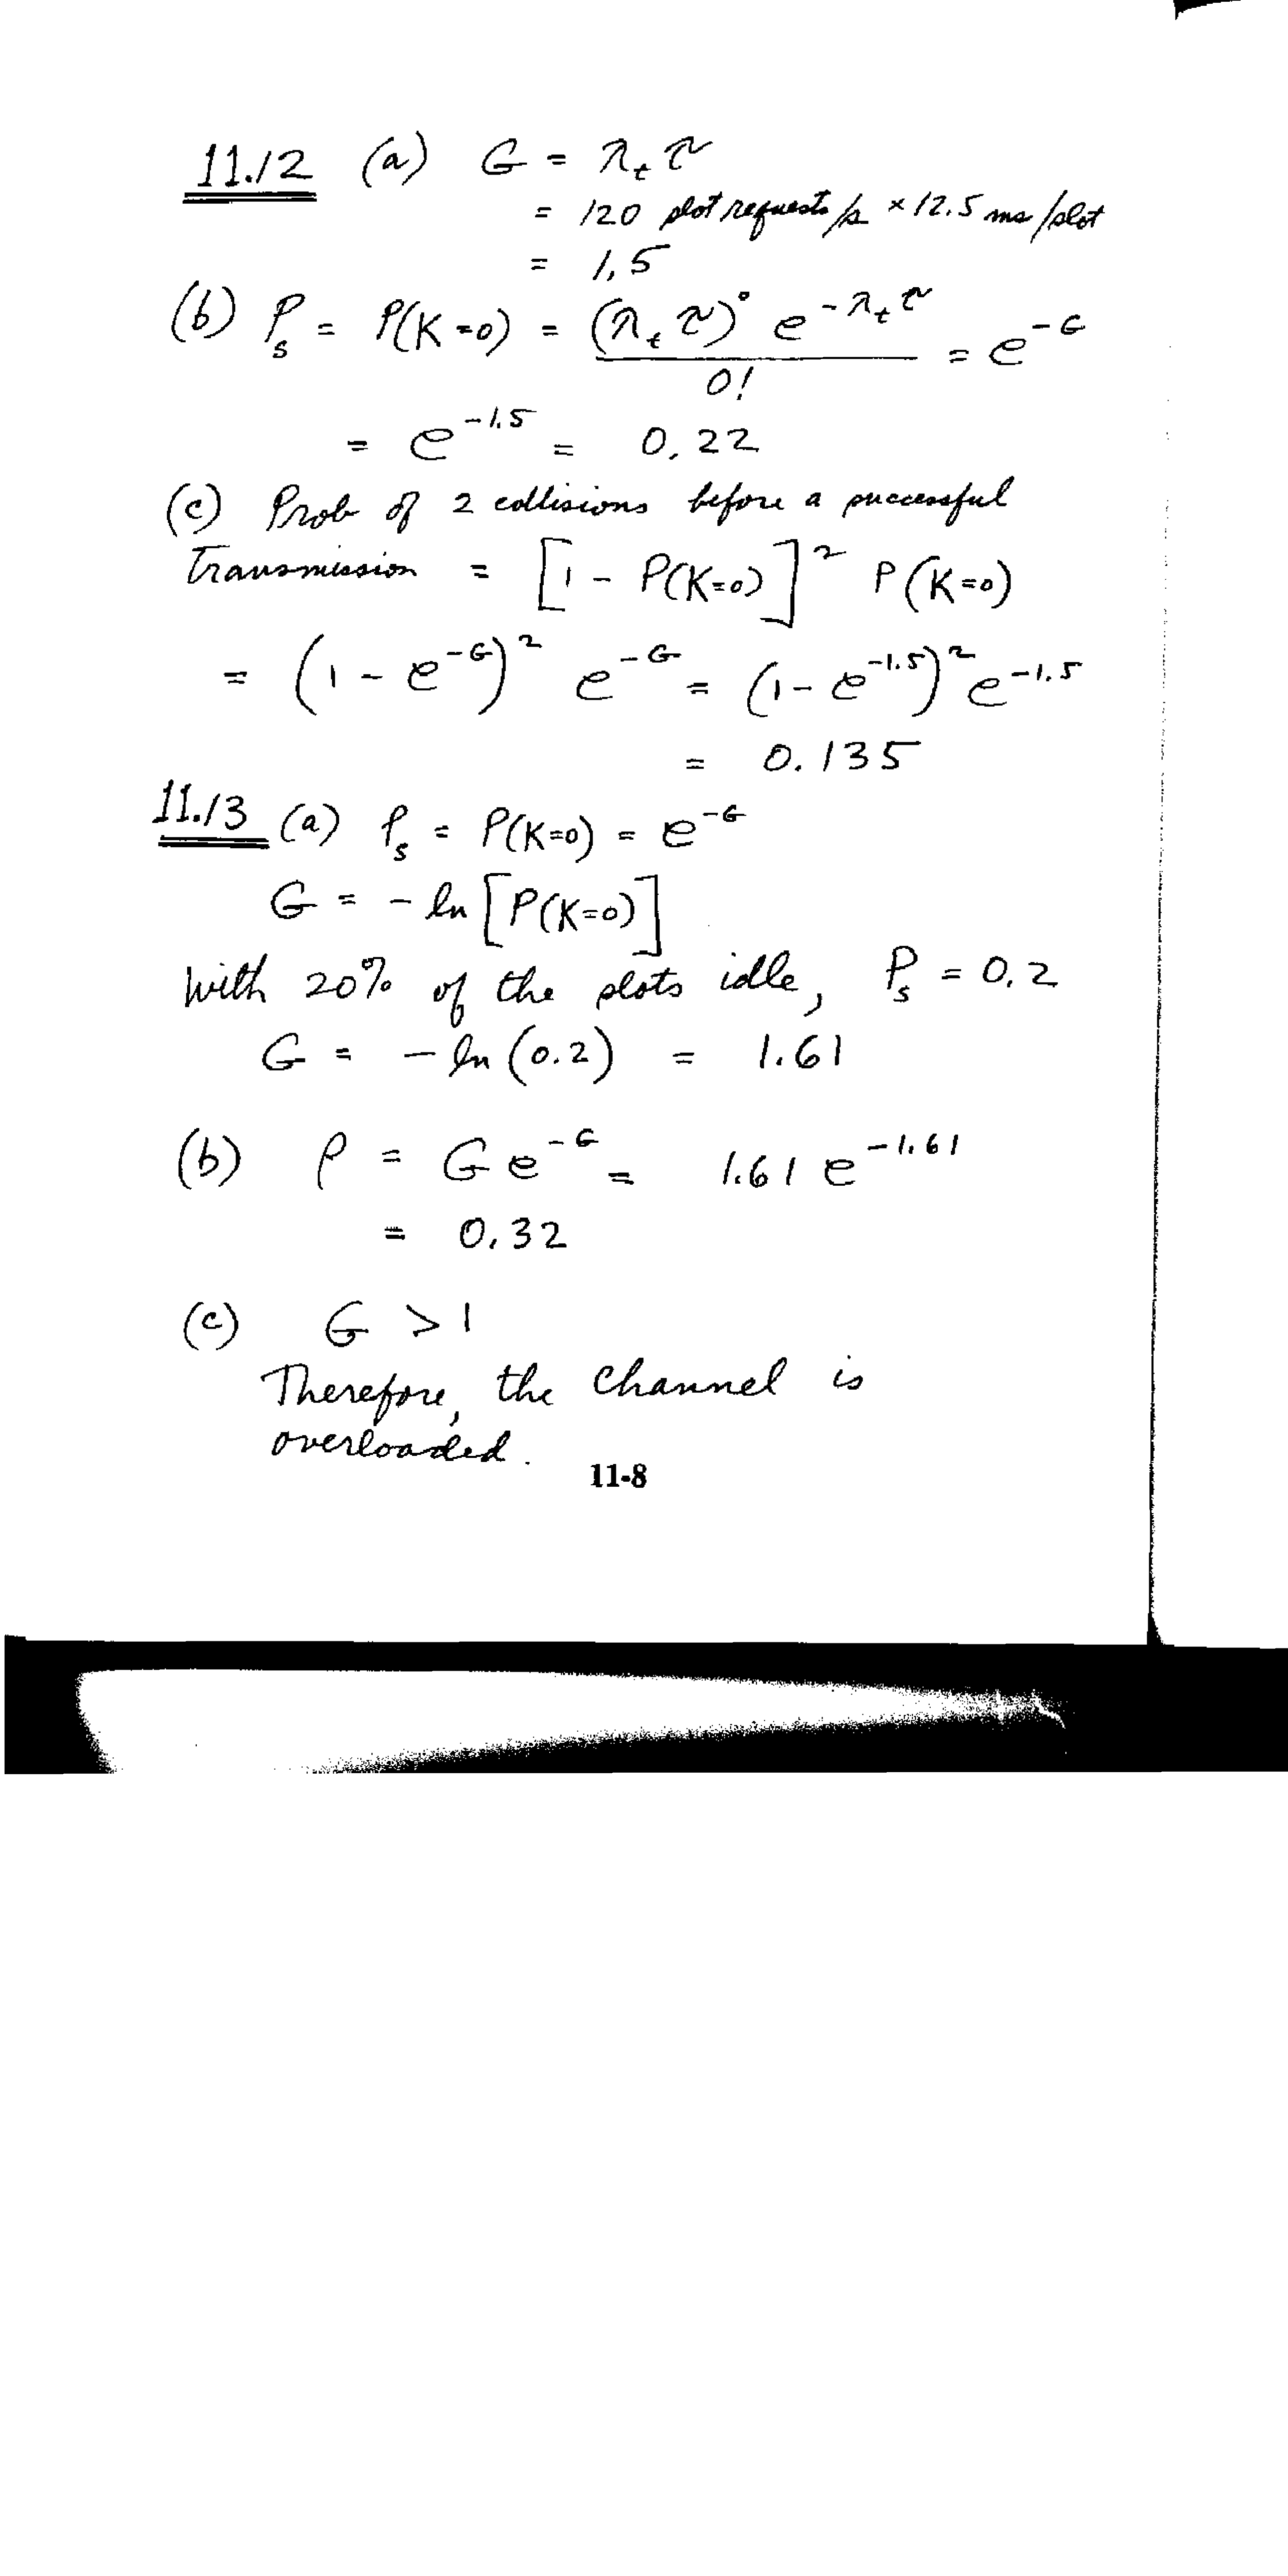 11.12 (a) G = λ_t τ
= 120 slot requests/s × 12.5 ms/slot
= 1.5
(b) P_s = P(K=0) = (λ_t τ)^0 e^{-λ_t τ} / 0! = e^{-G}
= e^{-1.5} = 0.22
(c) Prob of 2 collisions before a successful
transmission = [1 - P(K=0)]^2 P(K=0)
= (1 - e^{-G})^2 e^{-G} = (1 - e^{-1.5})^2 e^{-1.5}
= 0.135
11.13 (a) P_s = P(K=0) = e^{-G}
G = - ln [P(K=0)]
With 20% of the slots idle, P_s = 0.2
G = - ln (0.2) = 1.61
(b) ρ = G e^{-G} = 1.61 e^{-1.61}
= 0.32
(c) G > 1
Therefore, the channel is
overloaded.
11-8